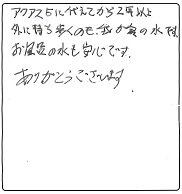 アクアス5に代えてから2年以上
外に持ち歩くのも、我が家の水です。
お風呂の水も安心です。
ありがとうございます